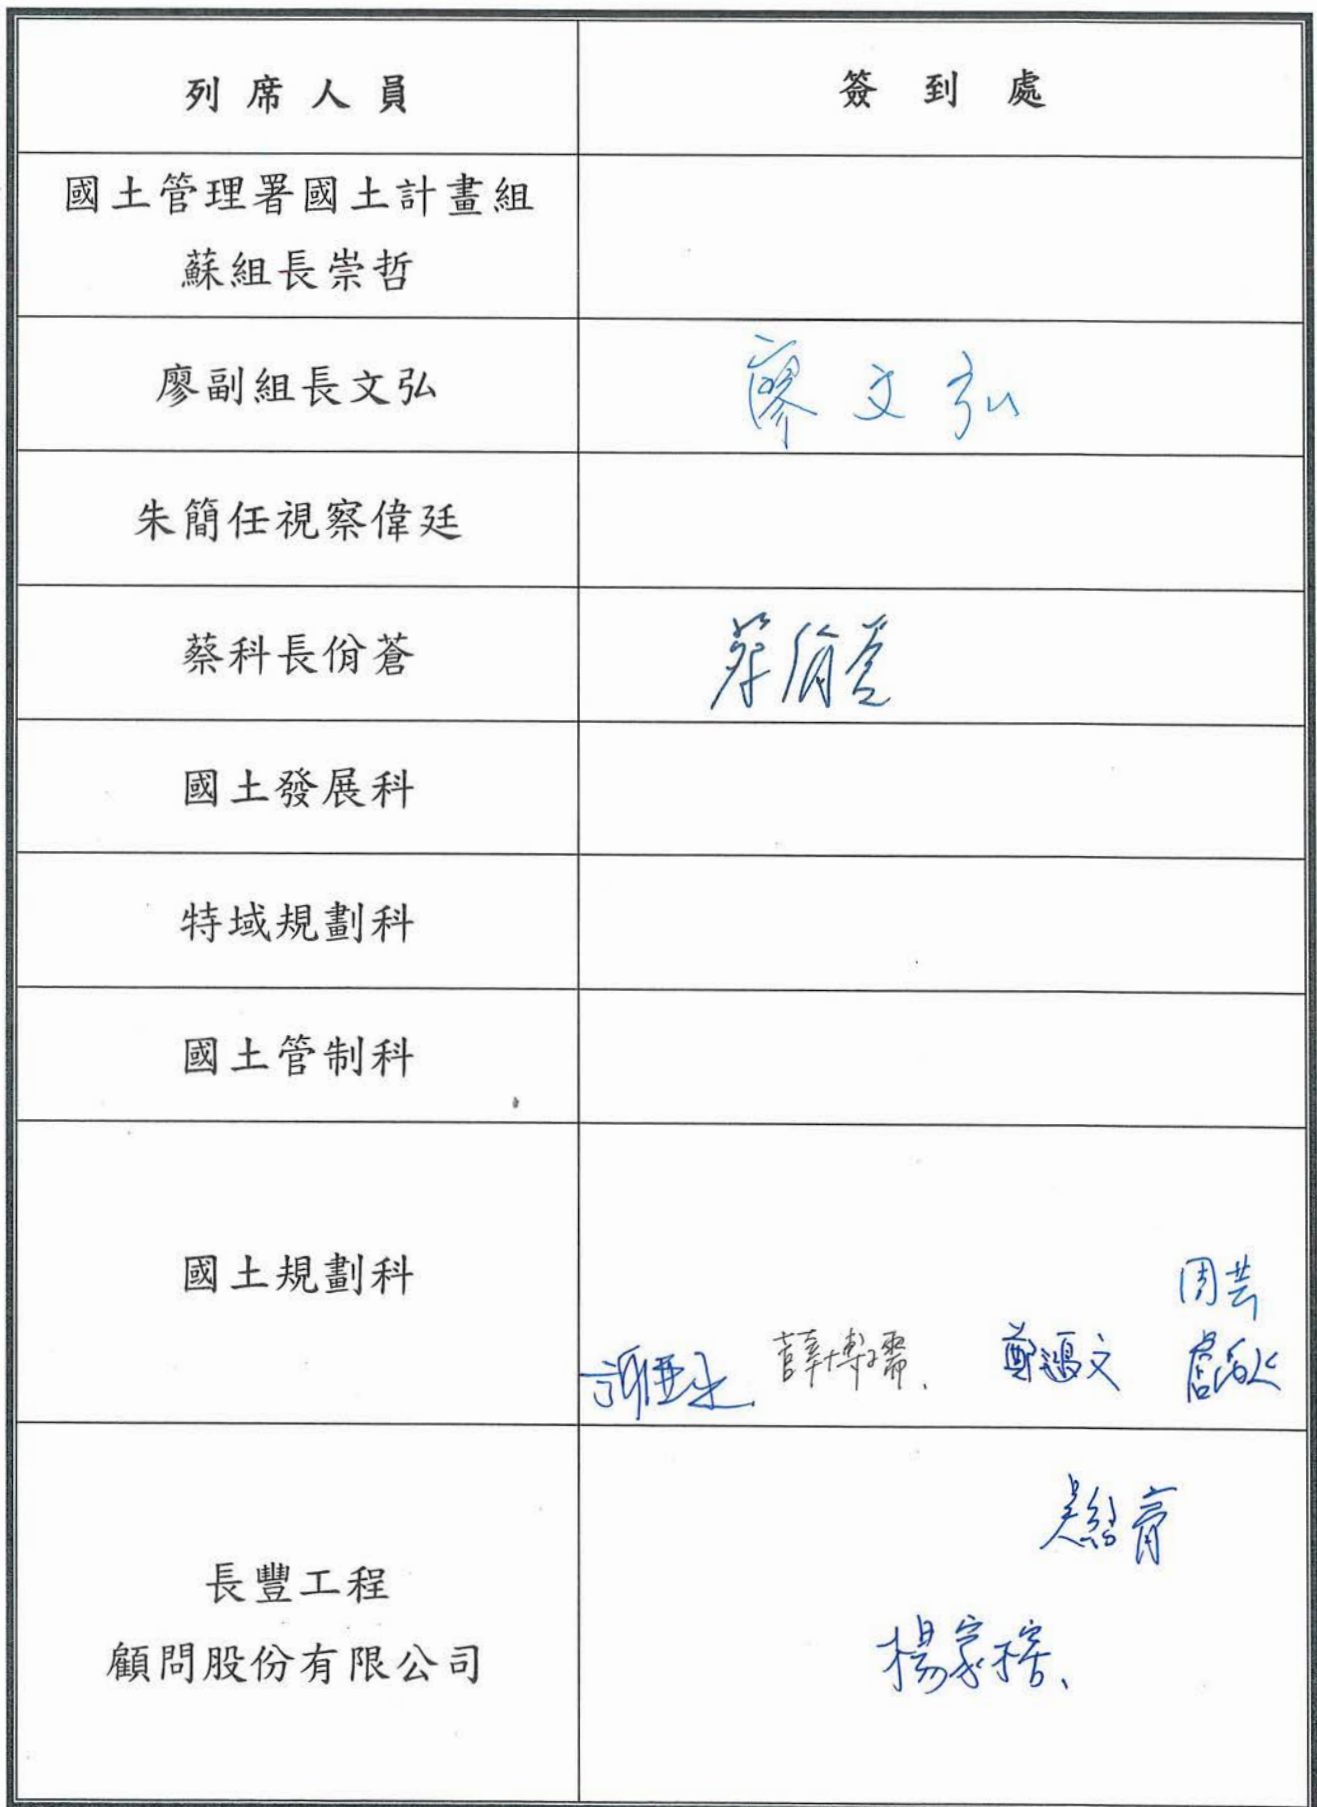 列席人員 簽到處
國土管理署國土計畫組
蘇組長崇哲
廖副組長文弘 廖文弘
朱簡任視察偉廷
蔡科長佾蒼 蔡佾蒼
國土發展科
特域規劃科
國土管制科
周芸
國土規劃科
薛博孺 鄭鴻文
吳紹膏
長豐工程
顧問股份有限公司
楊家榕